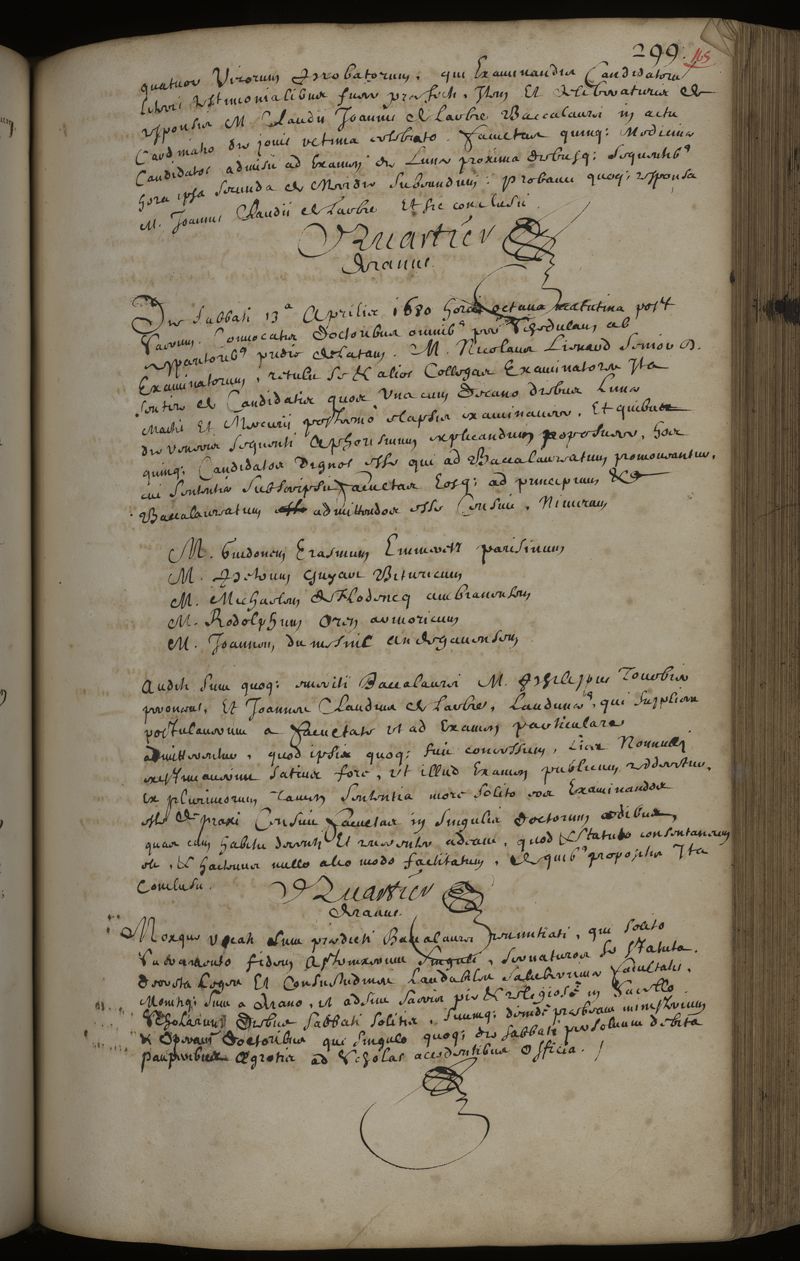 299. 165
quatuor Virorum probatorum, qui Examinandis Candidatis
literis testimonialibus fuere præfecti, Item Et deliberaturis de
responsis M. Claudii Joannis de Laubie Baccalaurei in actu
Cardinalitio die jovis ultima celebrato. Facultas quinq; Medicinæ
Candidatos admisit ad Examen die Lunæ proxima diebusq; sequentib9
hora ipsa secunda de Meridie subeundum: probavit quoq; responsa
M. Joannis Claudii de Laubie Et sic conclusit.
Quartier
Decanus.
Die Sabbati 13ª Aprilis 1680 hora octava matutina post
Sacrum. Convocatis Doctoribus omnib9 per Schedulam ab
Apparitorib9 pridie delatam. M. Nicolaus Lienard Senior
Examinatorum, retulit se et alios Collegas Examinatores Ita
sentire de Candidatis quos una cum Decano diebus Lunæ
Martis Et Mercurii postremo elapsis examinavere, Et quibus
die veneris sequenti Aphorismum explicandum proposuere, hos
quinq; Candidatos Dignos esse qui ad Baccalaureatum promoveantur,
cui sententiæ subscripsit Facultas Eosq; ad principium
Baccalaureatum admittendos esse Censuit, Nimirum
M. Guidonem Erasmum Emmerez parisinum
M. petrum Guyart Bituricum
M. Michaelem de Flodencq ambianensem
M. Rodolphum Oren armoricum
M. Joannem du mesnil andegavensem
Auditi sunt quoq; emeriti Baccalaurei M. philippus Douobie
et Joannes Claudius de Laubie, Laudunens9, qui supplices
postularunt a Facultate ut ad Examen particulare
admitterentur, quod ipsis quoq; fuit concessum, licet Nonnulli
existimaverint satius fore, ut illud Examen publicum redderetur,
Ex plurimorum tamen sententia more solito eos Examinandos
esse de praxi Censuit Facultas in singulis Doctorum ædibus,
quas cum habitu decenti Et reverenter adeant, quod Statuto consentaneum
est, et hactenus nullo alio modo factitatum, de quib9 propositis Ita
Conclusit. Quartier
Decanus.
Moxque vocati sunt prædicti Baccalaurei renuntiati, qui solito
Juramento fidem astrinxerunt singuli, servaturos se statuta.
Decreta Leges Et Consuetudines Laudabiles saluberrimæ Facultatis,
Monitiq; sunt a Decano, ut adsint sacris pie et religiose in Sacello
Scholarum Diebus sabbati solitis, suumq; deinde præbeant ministerium
et operam Doctoribus qui singulo quoq; die sabbati persolvunt debita
pauperibus Ægrotis ad Scholas accedentibus Officia.